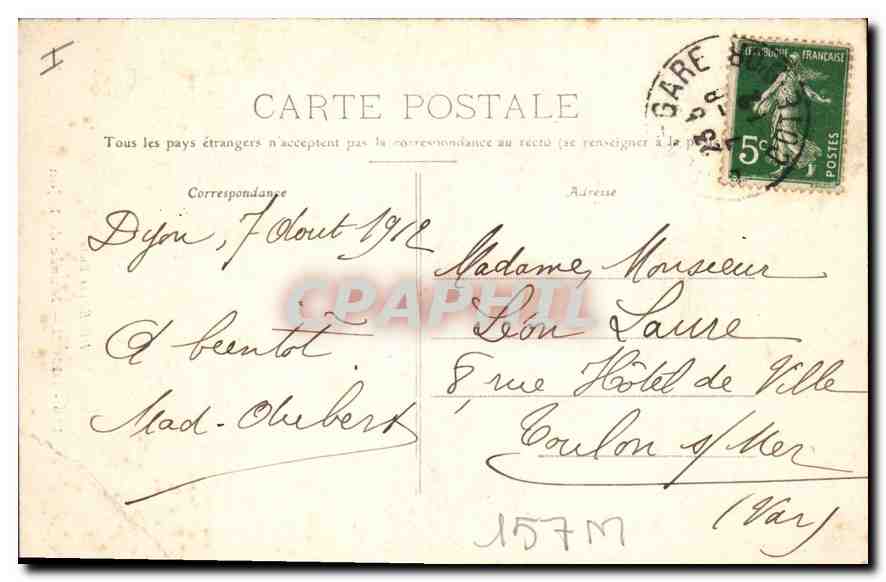 I
CARTE POSTALE
Tous les pays étrangers n'acceptent pas la correspondance au recto (se renseigner à la poste)
Correspondance
Adresse
GARE
23 5
RÉPUBLIQUE FRANÇAISE
5c
POSTES
COTE D'OR
Dijon, 7 Aout 1912
A bientôt
Mad. Aubert
Madame, Monsieur
Léon Laure
8, rue Hôtel de Ville
Toulon s/Mer
(Var)
CPAPHIL
157M